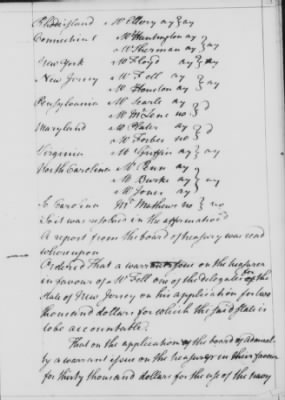 Rhode island Mr Ellery ay } ay
Connecticut Mr Huntington ay } ay
Mr Sherman ay
New York Mr Floyd ay } ay
New Jersey Mr Fell ay } ay
Mr Houston ay
Pensylvania Mr Searle ay }
Mr McLene no
Maryland Mr Plater ay }
Mr Forbes no
Virginia Mr Griffin ay } ay
North Carolina Mr Penn ay } ay
Mr Burke ay
Mr Jones ay
So Carolina Mr Mathews no } no
So it was resolved in the affirmative
A report from the board of treasury was read
whereupon
Ordered That a warrant issue on the treasurer
in favour of Mr Fell one of the delegates for the
state of New Jersey on his application for two
thousand dollars for which the said state is
to be accountable.
That on the application of the board of admiral
ty a warrant issue on the treasurer in their favour
for thirty thousand dollars for the use of the navy